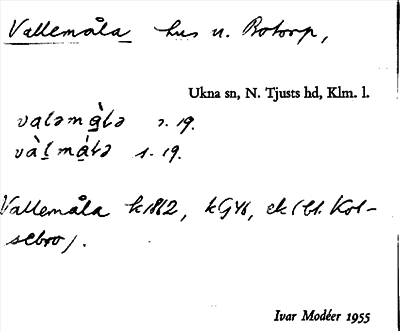 Vallemåla hus u. Botorp,
Ukna sn, N. Tjusts hd, Klm. l.
valəmą̀lə 2. 19.
và̱lmą́lə 1. 19.
Vallemåla k1862, kG46, ek (bl. Kol-
sebro).
Ivar Modéer 1955